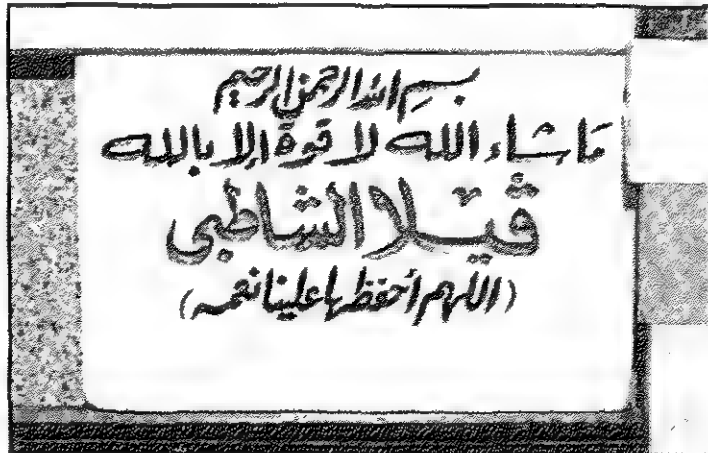 بسم الله الرحمن الرحيم
ما شاء الله لا قوة إلا بالله
ڤيلا الشاطبى
(اللهم أحفظها علينا نعمه)